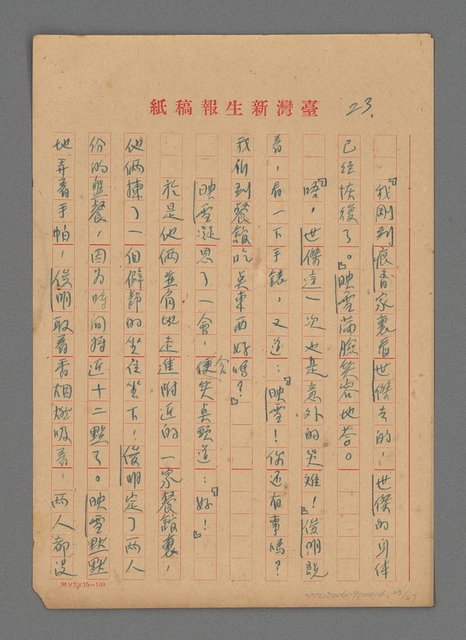 臺灣新生報稿紙
23.
「我剛到痕青家裏看世傑去的，世傑的身体
已經恢復了。」映雪滿臉笑容地答。
「唔，世傑這一次也是意外的災難！」俊明說
着，看一下手錶，又道：「映雪！你還有事嗎？
我們到餐館吃点東西好嗎？」
映雪凝思了一會，便含笑点頭道：「好！」
於是他俩並肩地走進附近的一家餐館裏，
他俩揀了一個僻静的坐位坐下，俊明定了兩人
份的盤餐，因为時间將近十二點了。映雪默默
地弄着手帕，俊明取着香烟燃吸着，兩人都没
36×2×15=100